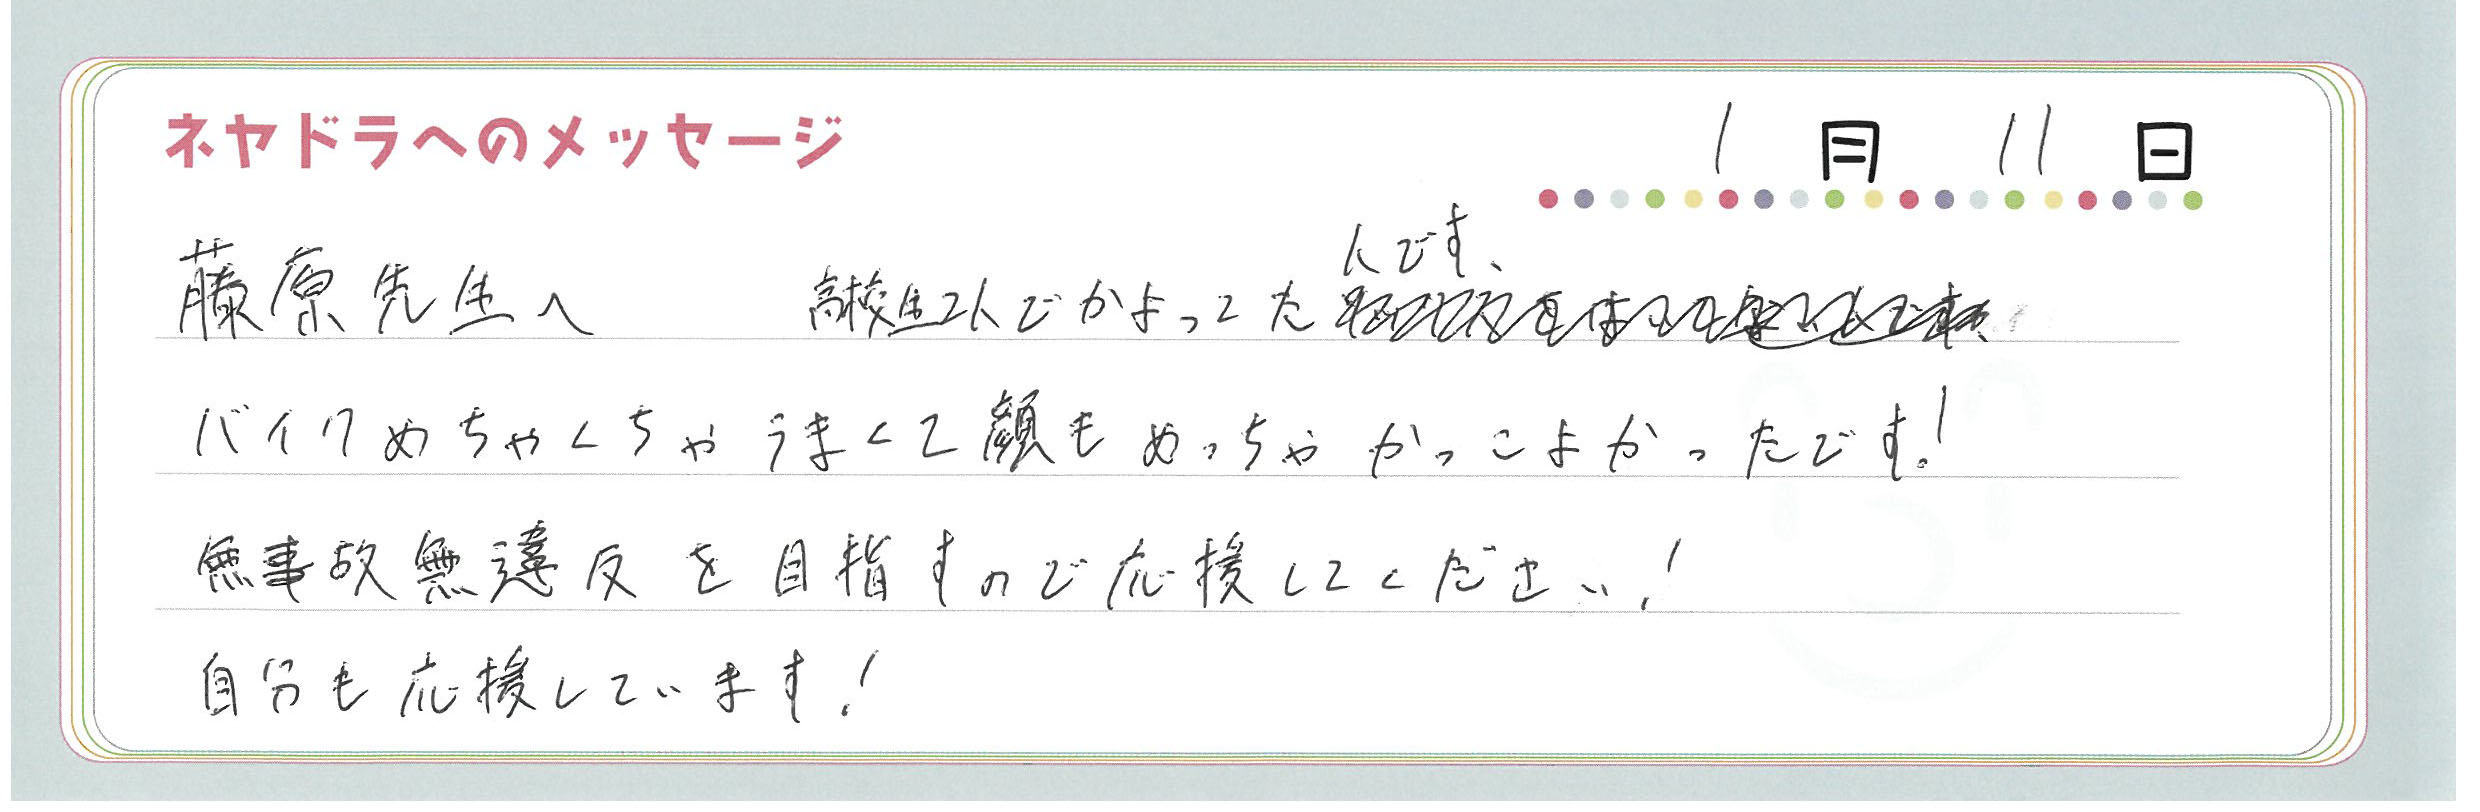 ネヤドラへのメッセージ
1月 11日
藤原先生へ 高校生2人でかよってたんです、
バイクめちゃくちゃうまくて顔もめっちゃかっこよかったです!
無事故無違反を目指すので応援してください!
自分も応援しています!